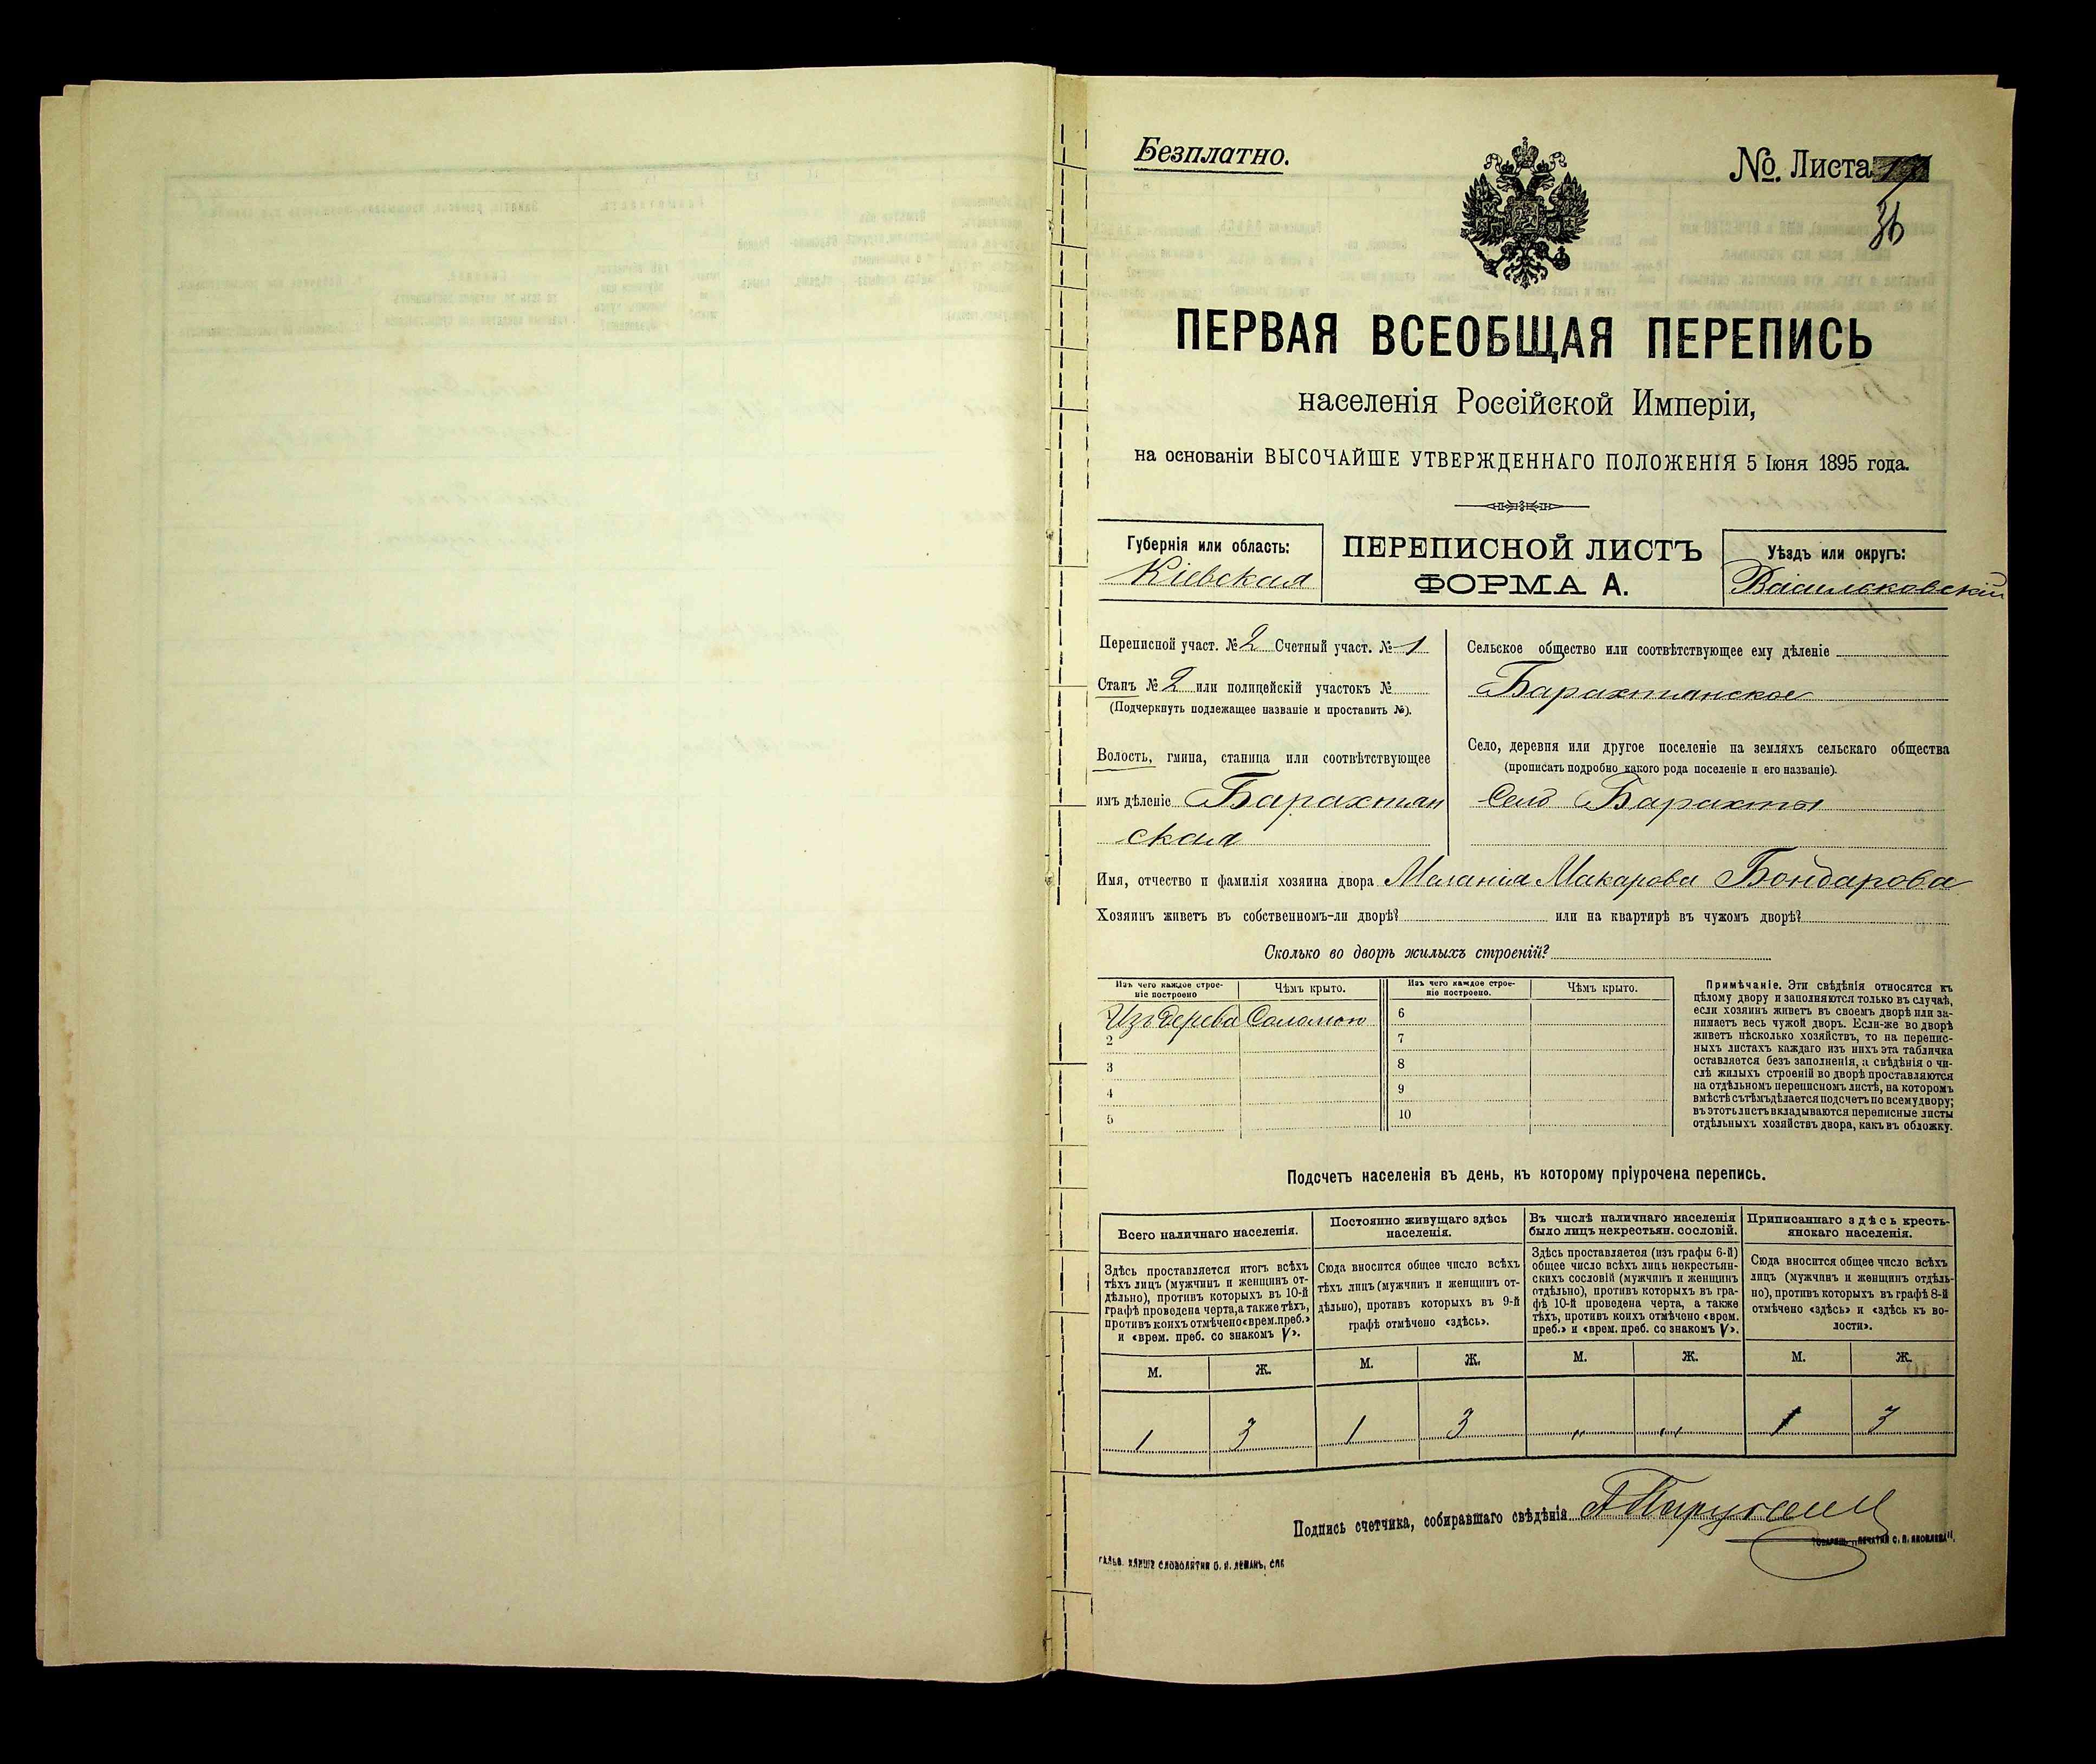 Безплатно.
№. Листа
36
ПЕРВАЯ ВСЕОБЩАЯ ПЕРЕПИСЬ
населенія Россійской Имперіи,
на основаніи ВЫСОЧАЙШЕ УТВЕРЖДЕННАГО ПОЛОЖЕНІЯ 5 Іюня 1895 года.
Губернія или область:
Кіевская
ПЕРЕПИСНОЙ ЛИСТЪ
ФОРМА А.
Уѣздъ или округъ:
Васильковскій
Переписной участ. № 2 Счетный участ. № 1
Станъ № 2 или полицейскій участокъ №
(Подчеркнуть подлежащее названіе и проставить №).
Волость, гмина, станица или соотвѣтствующее
имъ дѣленіе Барахтян
ская
Сельское общество или соотвѣтствующее ему дѣленіе
Барахтянское
Село, деревня или другое поселеніе на земляхъ сельскаго общества
(прописать подробно какого рода поселеніе и его названіе).
Село Барахты
Имя, отчество и фамилія хозяина двора Маланія Макарова Бондарова
Хозяинъ живетъ въ собственномъ-ли дворѣ? или на квартирѣ въ чужомъ дворѣ?
Сколько во дворѣ жилыхъ строеній?
Изъ чего каждое строе-
ніе построено
Чѣмъ крыто.
Изъ чего каждое строе-
ніе построено.
Чѣмъ крыто.
Изъ дерева Соломою
6
2
7
3
8
4
9
5
10
Примѣчаніе. Эти свѣдѣнія относятся къ
цѣлому двору и заполняются только въ случаѣ,
если хозяинъ живетъ въ своемъ дворѣ или за-
нимаетъ весь чужой дворъ. Если-же во дворѣ
живетъ нѣсколько хозяйствъ, то на перепис-
ныхъ листахъ каждаго изъ нихъ эта табличка
оставляется безъ заполненія, а свѣдѣнія о чи-
слѣ жилыхъ строеній во дворѣ проставляются
на отдѣльномъ переписномъ листѣ, на которомъ
вмѣстѣ съ тѣмъ дѣлается подсчетъ по всему двору;
въ этотъ листъ вкладываются переписные листы
отдѣльныхъ хозяйствъ двора, какъ въ обложку.
Подсчетъ населенія въ день, къ которому пріурочена перепись.
Всего наличнаго населенія.
Здѣсь проставляется итогъ всѣхъ
тѣхъ лицъ (мужчинъ и женщинъ от-
дѣльно), противъ которыхъ въ 10-й
графѣ проведена черта, а также тѣхъ,
противъ коихъ отмѣчено «врем. преб.»
и «врем. преб. со знакомъ V».
Постоянно живущаго здѣсь
населенія.
Сюда вносится общее число всѣхъ
тѣхъ лицъ (мужчинъ и женщинъ от-
дѣльно), противъ которыхъ въ 9-й
графѣ отмѣчено «здѣсь».
Въ числѣ наличнаго населенія
было лицъ некрестьян. сословій.
Здѣсь проставляется (изъ графы 6-й)
общее число всѣхъ лицъ некрестьян-
скихъ сословій (мужчинъ и женщинъ
отдѣльно), противъ которыхъ въ гра-
фѣ 10-й проведена черта, а также
тѣхъ, противъ коихъ отмѣчено «врем.
преб.» и «врем. преб. со знакомъ V».
Приписаннаго здѣсь кресть-
янскаго населенія.
Сюда вносится общее число всѣхъ
лицъ (мужчинъ и женщинъ отдѣль-
но), противъ которыхъ въ графѣ 8-й
отмѣчено «здѣсь» и «здѣсь къ во-
лости».
М. Ж. М. Ж. М. Ж. М. Ж.
1 3 1 3 „ „ 1 3
Подпись счетчика, собиравшаго свѣдѣнія
ГАЛЬВ. КЛИШЕ СЛОВОЛИТНИ О. И. ЛЕМАНЪ, СПБ
ТОВАРИЩ. „ПЕЧАТНИ С. П. ЯКОВЛЕВА".